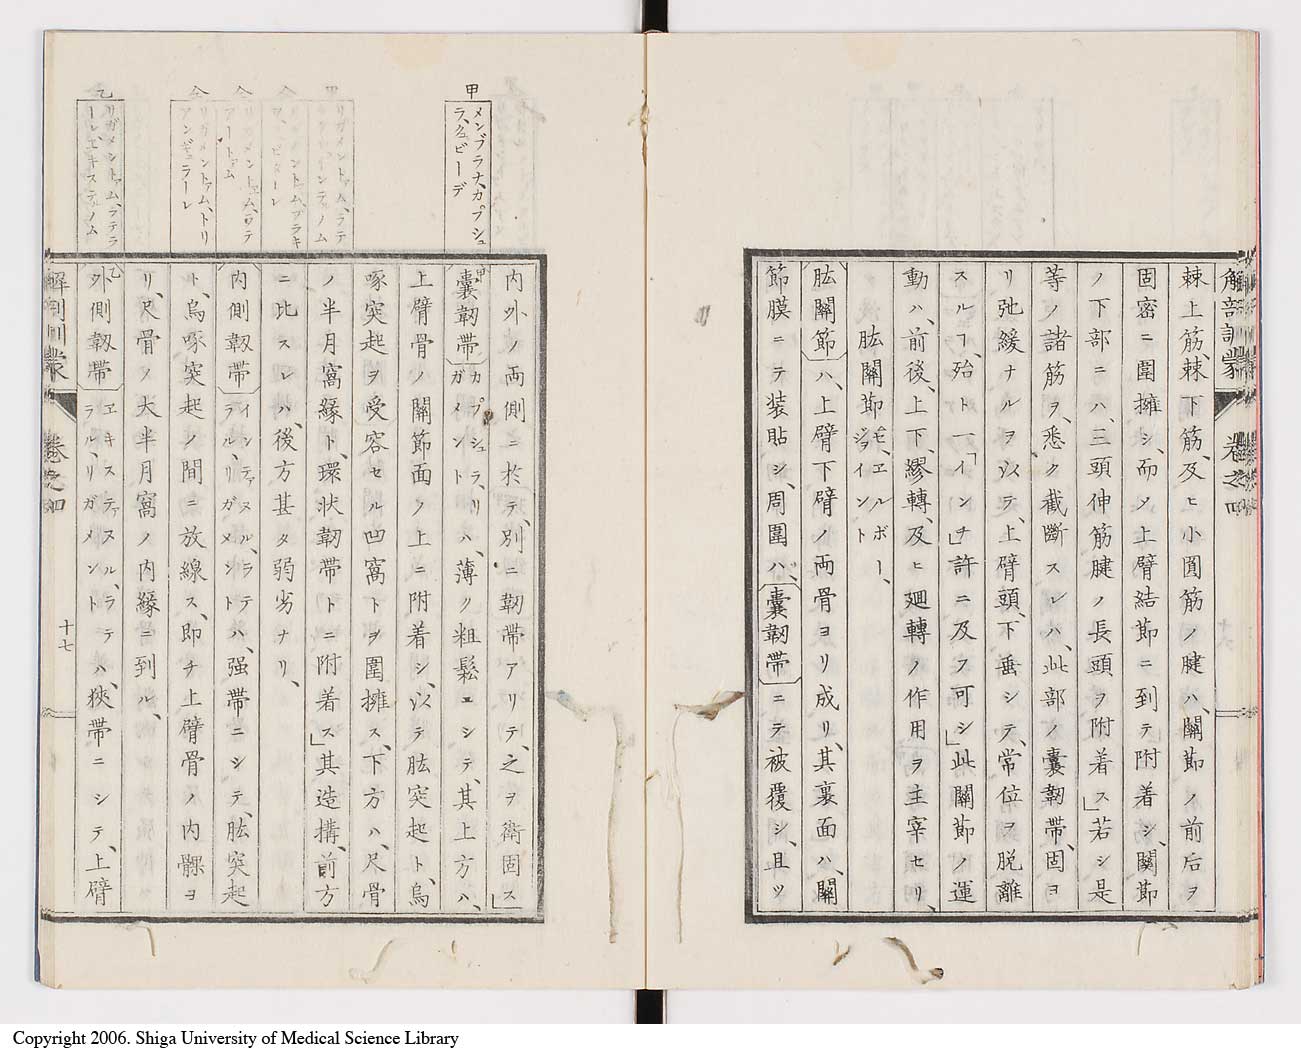 解剖訓蒙 卷之四
棘上筋、棘下筋、及ヒ小圓筋ノ腱ハ、關節ノ前后ヲ
固密ニ圍擁シ、而ソ上臂結節ニ到テ附着シ、關節
ノ下部ニハ、三頭伸筋腱ノ長頭ヲ附着ス」若シ是
等ノ諸筋ヲ、悉ク截斷スレハ、此部ノ囊韌帶、固ヨ
リ弛緩ナルヲ以テ、上臂頭、下垂シテ、常位ヲ脱離
スルヿ、殆ト一「インチ」許ニ及フ可シ」此關節ノ運
動ハ、前後、上下、繆轉、及ヒ廻轉ノ作用ヲ主宰セリ、
肱關節 ゼ、エルボー、ジョイント
肱關節ハ、上臂下臂ノ両骨ヨリ成リ、其裏面ハ、關
節膜ニテ装貼シ、周圍ハ、囊韌帶ニテ被覆シ、且ツ
内外ノ両側ニ於テ、別ニ韌帶アリテ、之ヲ衛固ス」
甲囊韌帶 カプシュラ、リガメント ハ、薄ク粗鬆ニシテ、其上方ハ、
上臂骨ノ關節面ノ上ニ附着シ、以テ肱突起ト、烏
啄突起ヲ受容セル凹窩トヲ圍擁ス、下方ハ、尺骨
ノ半月窩縁ト、環状韌帶トニ附着ス」其造搆、前方
ニ比スレハ、後方甚タ弱劣ナリ、
内側韌帶 インテァヌル、ラテラル、リガメント ハ、强帶ニシテ、肱突起
ト、烏啄突起ノ間ニ放線ス、即チ上臂骨ノ内髁ヨ
リ、尺骨ノ大半月窩ノ内縁ニ到ル、
乙外側韌帶 エキステァヌル、ラテラル、リガメント ハ、狹帶ニシテ、上臂
解剖訓蒙 卷之四 十七
甲
メンブラナ、カプシュ
ラ、クュビーデ
甲
リガメントァム、ラテ
仝
リガメントァム、ブラキ
仝
リガメントァム、ラテ
アートァム
仝
リガメントァム、トリ
アンギュラーレ
乙
リガメントァム、ラテラ
ーレ、エキステァノム